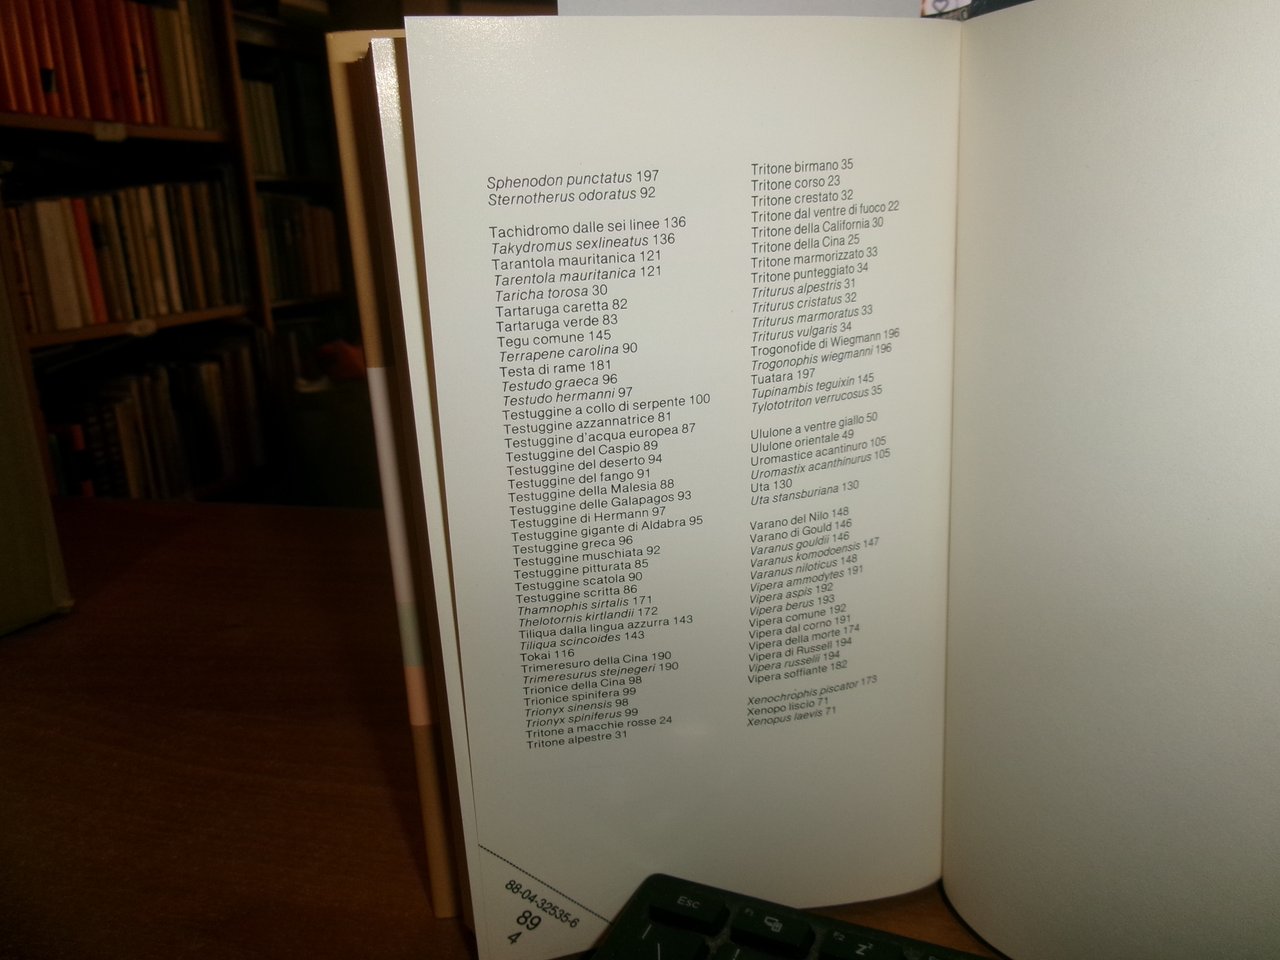 Sphenodon punctatus 197
Sternotherus odoratus 92
Tachidromo dalle sei linee 136
Takydromus sexlineatus 136
Tarantola mauritanica 121
Tarentola mauritanica 121
Taricha torosa 30
Tartaruga caretta 82
Tartaruga verde 83
Tegu comune 145
Terrapene carolina 90
Testa di rame 181
Testudo graeca 96
Testudo hermanni 97
Testuggine a collo di serpente 100
Testuggine azzannatrice 81
Testuggine d'acqua europea 87
Testuggine del Caspio 89
Testuggine del deserto 94
Testuggine del fango 91
Testuggine della Malesia 88
Testuggine delle Galapagos 93
Testuggine di Hermann 97
Testuggine gigante di Aldabra 95
Testuggine greca 96
Testuggine muschiata 92
Testuggine pitturata 85
Testuggine scatola 90
Testuggine scritta 86
Thamnophis sirtalis 171
Thelotornis kirtlandii 172
Tiliqua dalla lingua azzurra 143
Tiliqua scincoides 143
Tokai 116
Trimeresuro della Cina 190
Trimeresurus stejnegeri 190
Trionice della Cina 98
Trionice spinifera 99
Trionyx sinensis 98
Trionyx spiniferus 99
Tritone a macchie rosse 24
Tritone alpestre 31
Tritone birmano 35
Tritone corso 23
Tritone crestato 32
Tritone dal ventre di fuoco 22
Tritone della California 30
Tritone della Cina 25
Tritone marmorizzato 33
Tritone punteggiato 34
Triturus alpestris 31
Triturus cristatus 32
Triturus marmoratus 33
Triturus vulgaris 34
Trogonofide di Wiegmann 196
Trogonophis wiegmanni 196
Tuatara 197
Tupinambis teguixin 145
Tylototriton verrucosus 35
Ululone a ventre giallo 50
Ululone orientale 49
Uromastice acantinuro 105
Uromastix acanthinurus 105
Uta 130
Uta stansburiana 130
Varano del Nilo 148
Varano di Gould 146
Varanus gouldii 146
Varanus komodoensis 147
Varanus niloticus 148
Vipera ammodytes 191
Vipera aspis 192
Vipera berus 193
Vipera comune 192
Vipera dal corno 191
Vipera della morte 174
Vipera di Russell 194
Vipera russelii 194
Vipera soffiante 182
Xenochrophis piscator 173
Xenopo liscio 71
Xenopus laevis 71
88-04-32535-6
89
4
ESC
F1
F2
Z